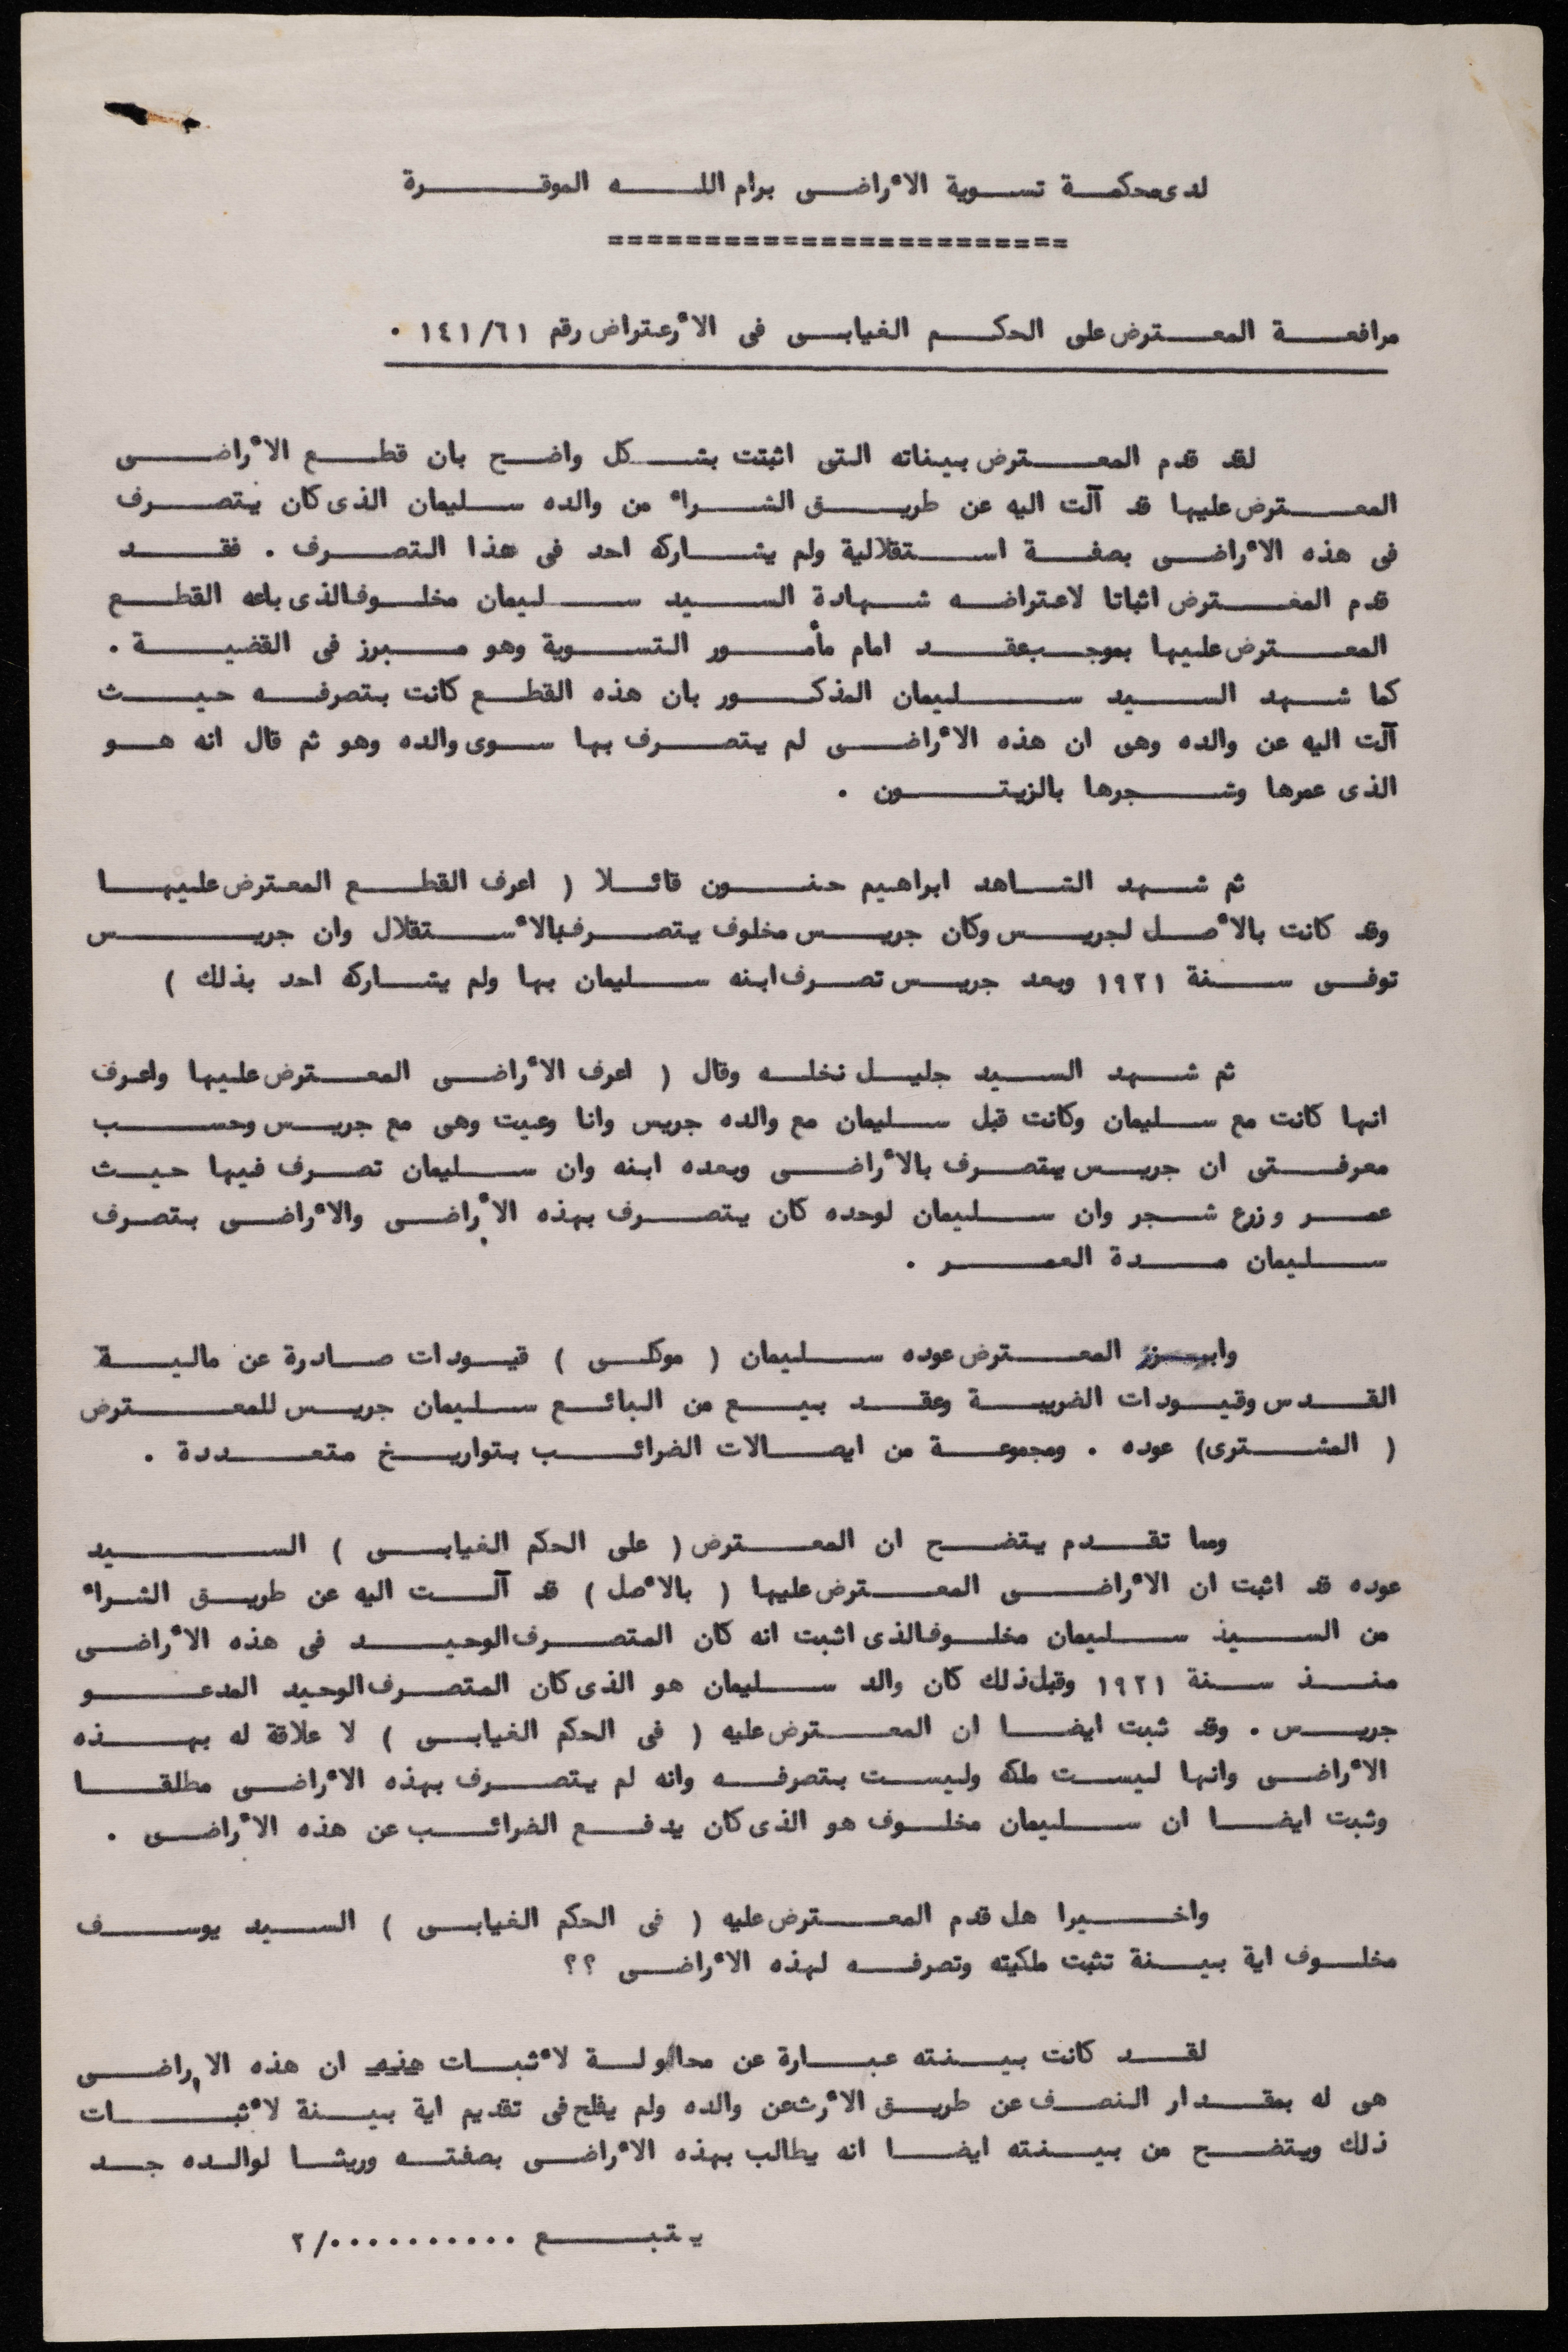 لدى محكمة تسوية الأراضى برام الله الموقرة
========================
مرافعة المعترض على الحكم الغيابى فى الأعتراض رقم ١٤١/٦١ .
لقد قدم المعترض بيناته التى اثبتت بشكل واضح بان قطع الأراضى
المعترض عليها قد آلت اليه عن طريق الشراء من والده سليمان الذى كان يتصرف
فى هذه الأراضى بصفة استقلالية ولم يشاركه احد فى هذا التصرف . فقد
قدم المعترض اثباتا لاعتراضه شهادة السيد سليمان مخلوف الذى باعه القطع
المعترض عليها بموجب عقد امام مأمور التسوية وهو مبرز فى القضية .
كما شهد السيد سليمان المذكور بان هذه القطع كانت بتصرفه حيث
آلت اليه عن والده وهى ان هذه الأراضى لم يتصرف بها سوى والده وهو ثم قال انه هو
الذى عمرها وشجرها بالزيتون .
ثم شهد الشاهد ابراهيم حنون قائلا ( اعرف القطع المعترض عليها
وقد كانت بالأصل لجريس وكان جريس مخلوف يتصرف بالأستقلال وان جريس
توفى سنة ١٩٢١ وبعد جريس تصرف ابنه سليمان بها ولم يشاركه احد بذلك )
ثم شهد السيد جليل نخله وقال ( اعرف الأراضى المعترض عليها واعرف
انها كانت مع سليمان وكانت قبل سليمان مع والده جريس وانا وعيت وهى مع جريس وحسب
معرفتى ان جريس يتصرف بالأراضى وبعده ابنه وان سليمان تصرف فيها حيث
عمر وزرع شجر وان سليمان لوحده كان يتصرف بهذه الأراضى والأراضى بتصرف
سليمان مدة العمر .
وابرز المعترض عوده سليمان ( موكلى ) قيودات صادرة عن مالية
القدس وقيودات الضريبة وعقد بيع من البائع سليمان جريس للمعترض
( المشترى) عوده . ومجموعة من ايصالات الضرائب بتواريخ متعددة .
ومما تقدم يتضح ان المعترض ( على الحكم الغيابى ) السيد
عوده قد اثبت ان الأراضى المعترض عليها ( بالأصل ) قد آلت اليه عن طريق الشراء
من السيد سليمان مخلوف الذى اثبت انه كان المتصرف الوحيد فى هذه الأراضى
منذ سنة ١٩٢١ وقبل ذلك كان والد سليمان هو الذى كان المتصرف الوحيد المدعو
جريس . وقد ثبت ايضا ان المعترض عليه ( فى الحكم الغيابى ) لا علاقة له بهذه
الأراضى وانها ليست ملكه وليست بتصرفه وانه لم يتصرف بهذه الأراضى مطلقا
وثبت ايضا ان سليمان مخلوف هو الذى كان يدفع الضرائب عن هذه الأراضى .
واخيرا هل قدم المعترض عليه ( فى الحكم الغيابى ) السيد يوسف
مخلوف اية بينة تثبت ملكيته وتصرفه لهذه الأراضى ؟؟
لقد كانت بينته عبارة عن محاولة لأثبات ان هذه الاراضى
هى له بمقدار النصف عن طريق الأرث عن والده ولم يفلح فى تقديم اية بينة لأثبات
ذلك ويتضح من بينته ايضا انه يطالب بهذه الأراضى بصفته وريثا لوالده جد
يتبع ............/٢